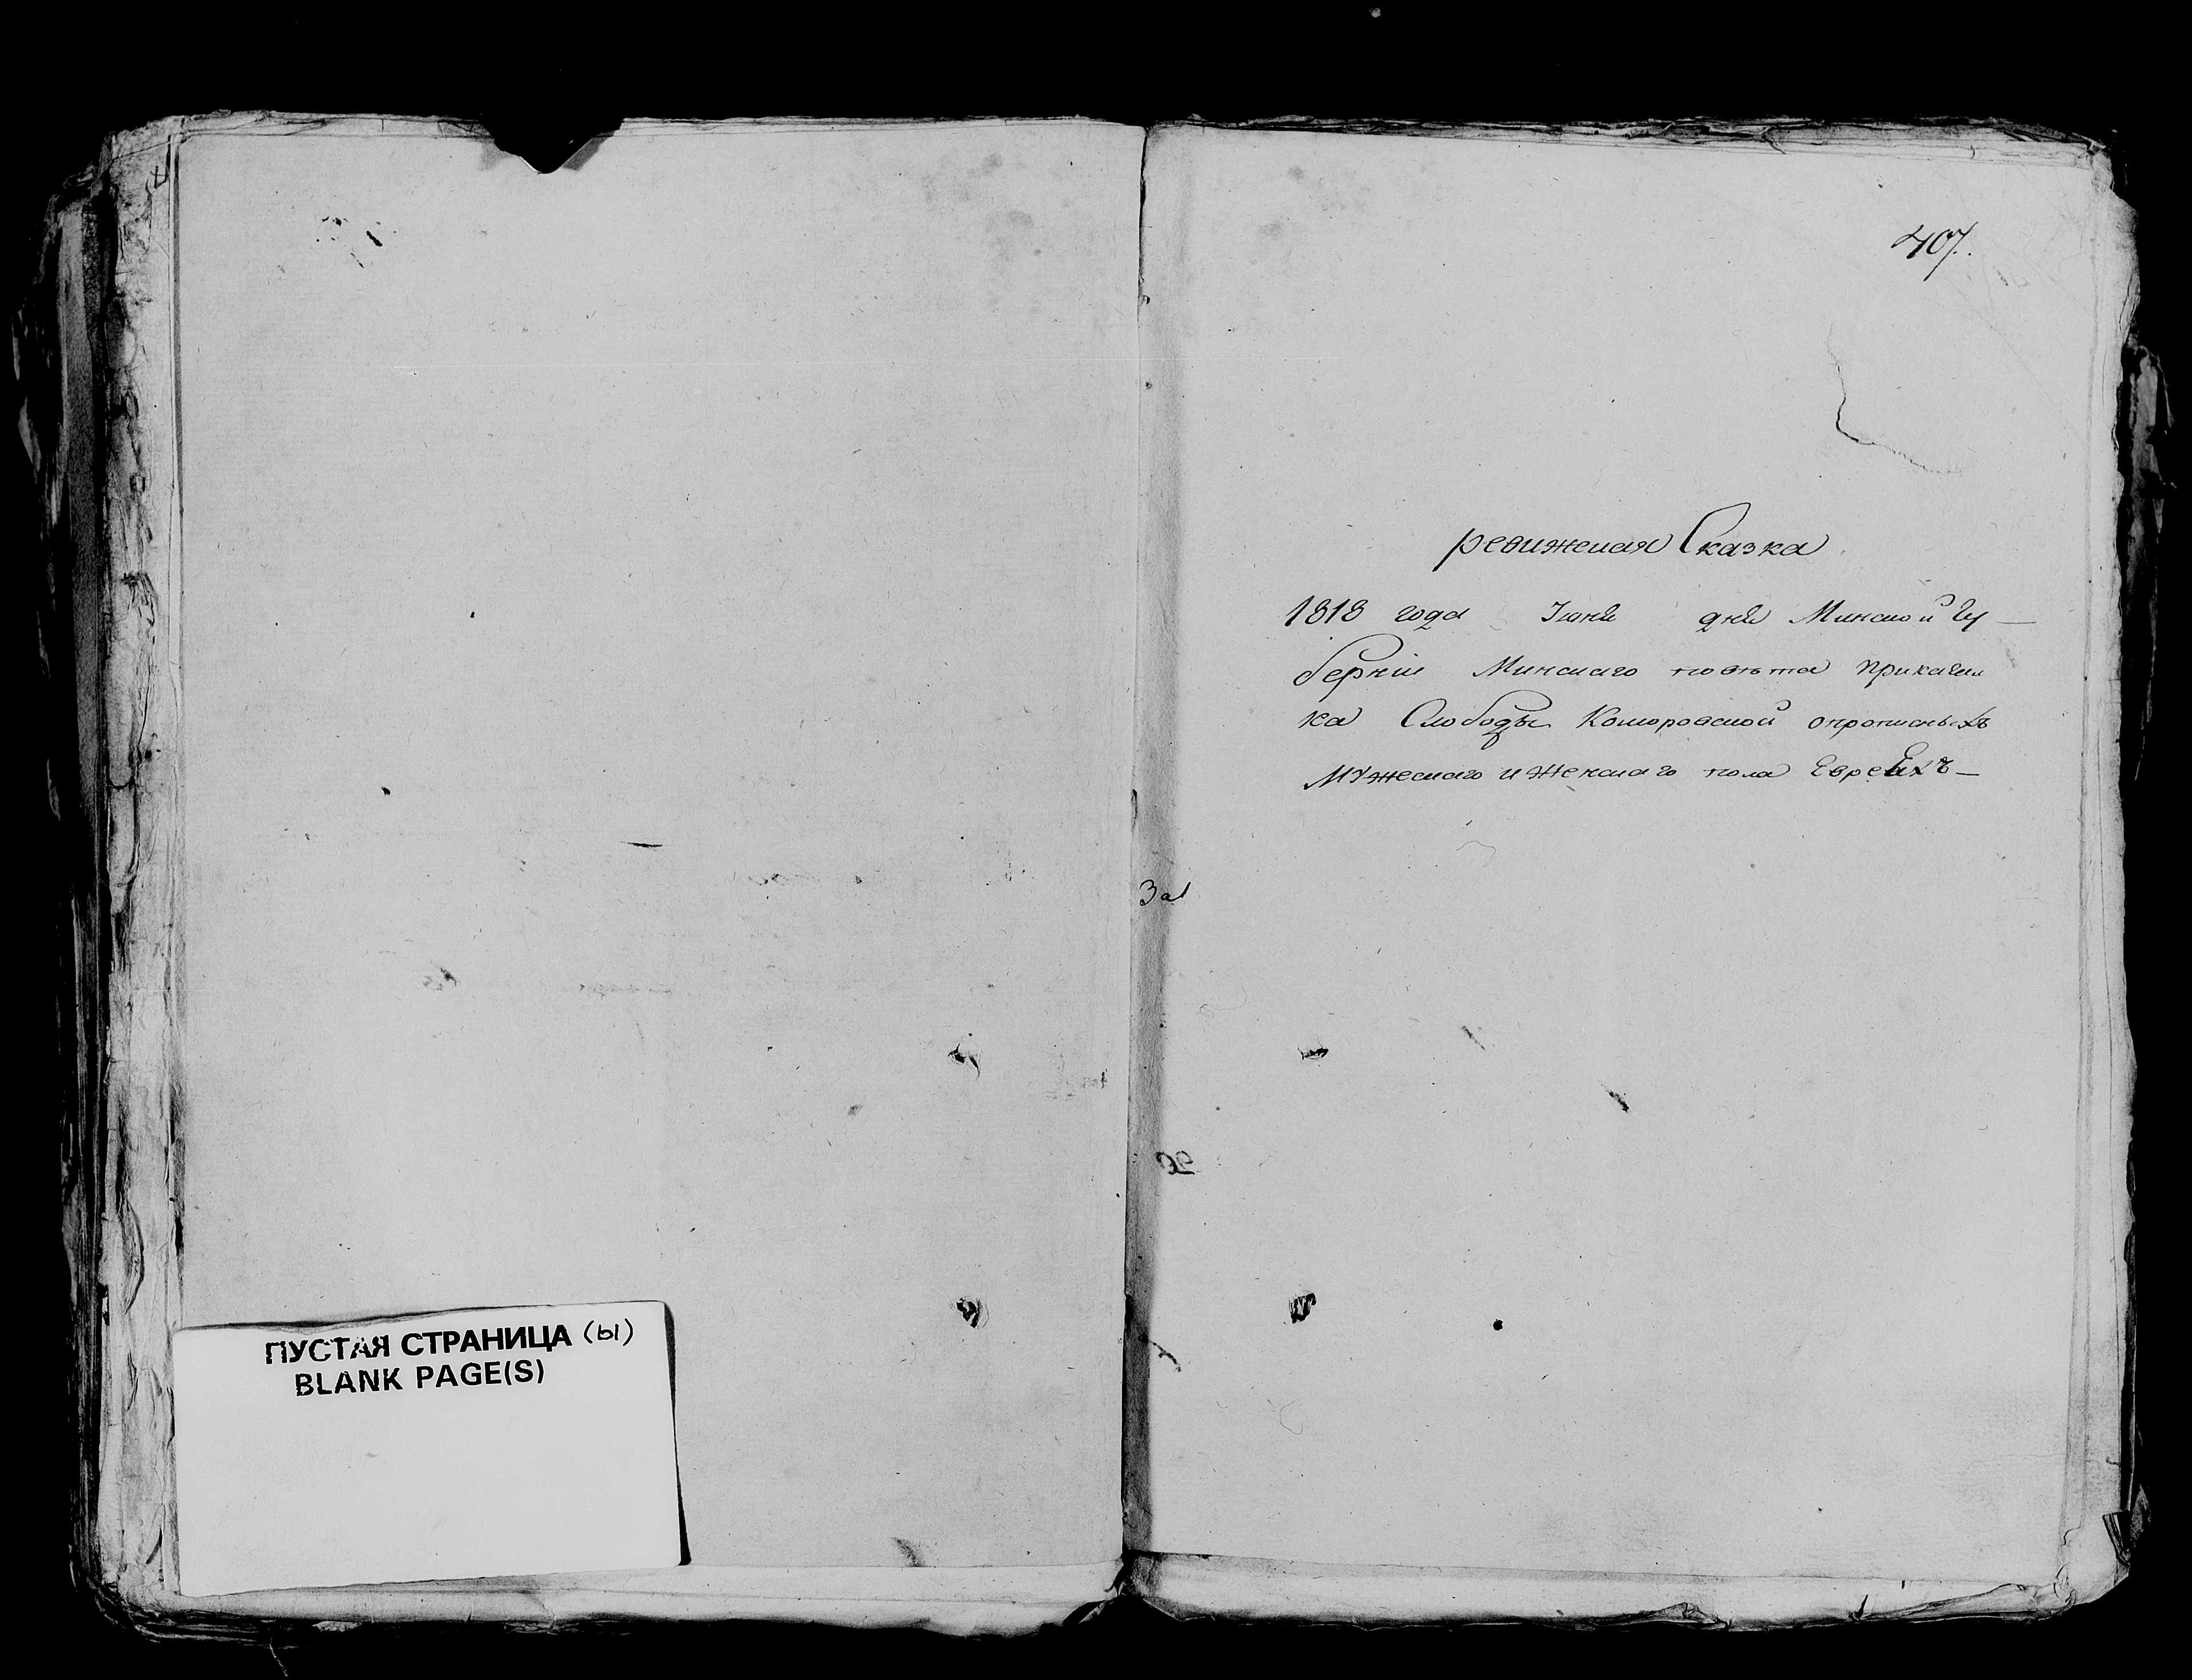 407.
ревижская Сказка
1818 года Iюня дня Минской Гу—
бернiи Минскаго повѣта прикагалка
ка Слободы Коморовской опрописныхъ
мужескаго и женскаго пола Евреяхъ—
За
ПУСТАЯ СТРАНИЦА (ы)
BLANK PAGE(S)